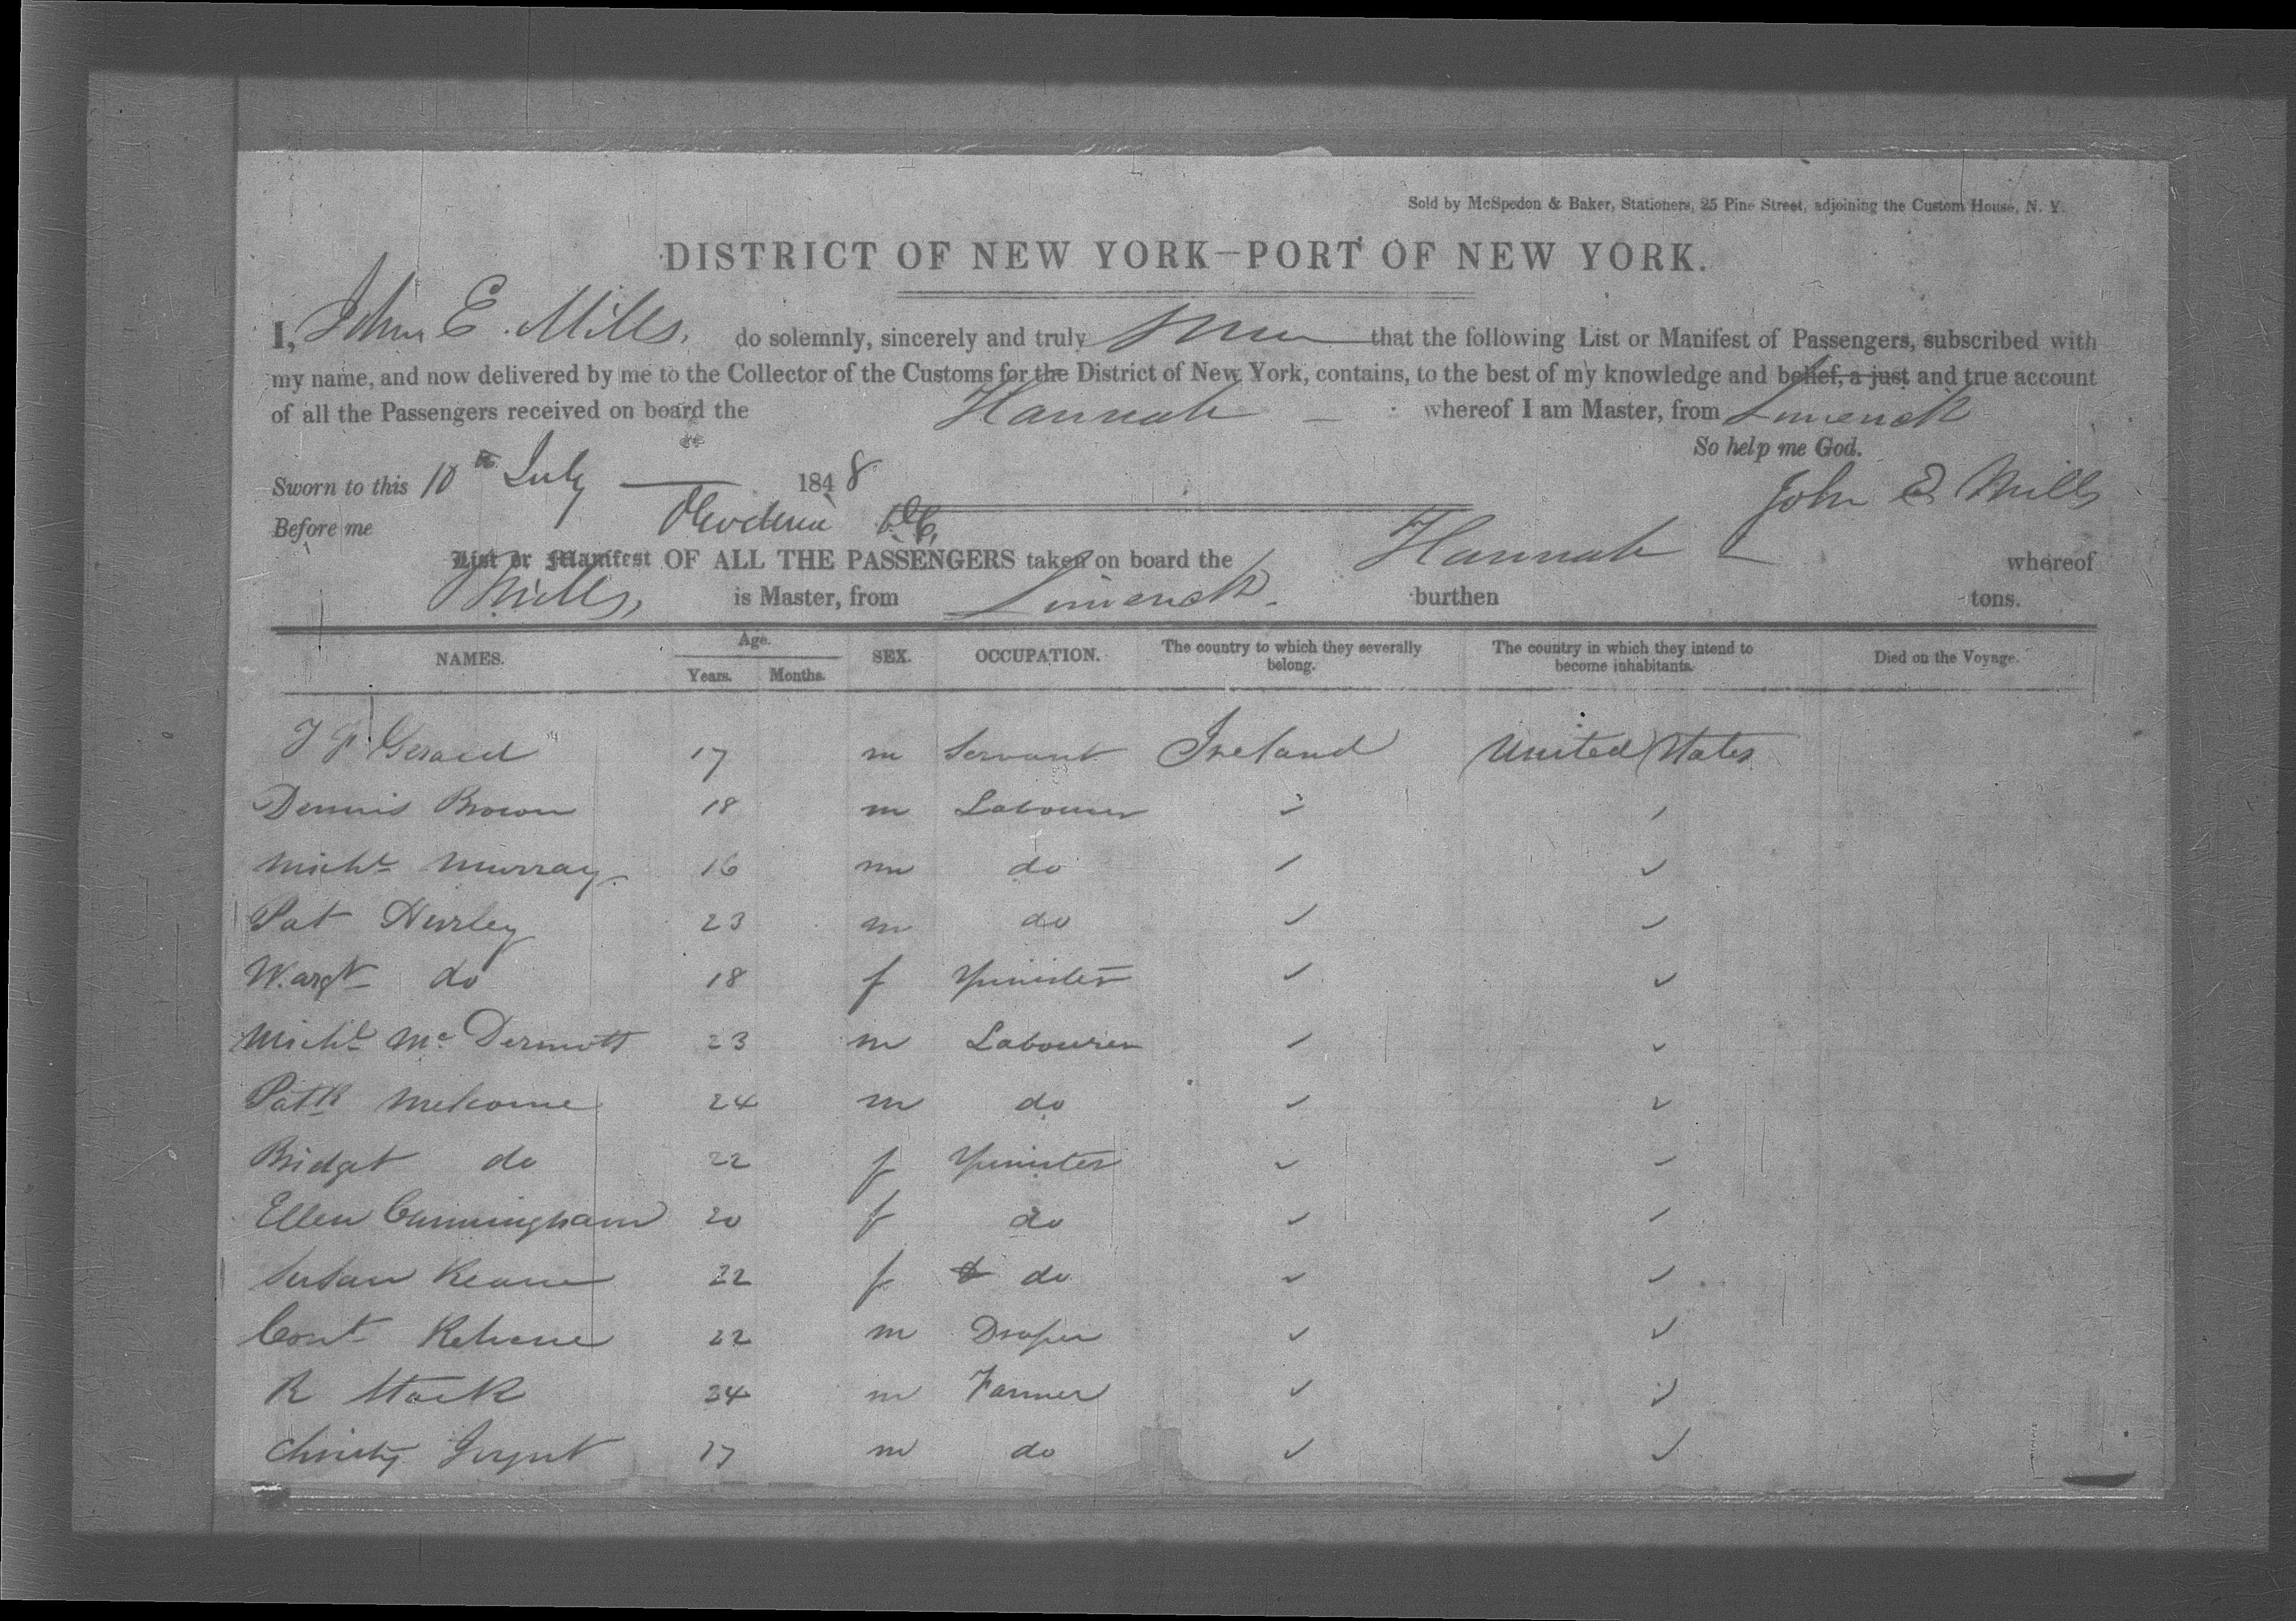 Sold by McSpedon & Baker, Stationers, 25 Pine Street, adjoining the Custom House, N. Y.
DISTRICT OF NEW YORK—PORT OF NEW YORK.
I, John E. Mills, do solemnly, sincerely and truly that the following List or Manifest of Passengers, subscribed with
my name, and now delivered by me to the Collector of the Customs for the District of New York, contains, to the best of my knowledge and belief, a just and true account
of all the Passengers received on board the Hannah — whereof I am Master, from Limerick
So help me God.
Sworn to this 10th July 1848 John E Mills
Before me
List or Manifest OF ALL THE PASSENGERS taken on board the Hannah — whereof
Mills, is Master, from Limerick. burthen tons.
NAMES. Age. Years. Months. SEX. OCCUPATION. The country to which they severally belong. The country in which they intend to become inhabitants. Died on the Voyage.
17 m Servant Ireland United States
Dennis Brown 18 m Labourer ✓ ✓
Michl Murray 16 m do ✓ ✓
Pat Hurley 23 m do ✓ ✓
do 18 f Spinster ✓ ✓
Michl Mc Dermott 23 m Labourer ✓ ✓
Patk 24 m do ✓ ✓
Bridget do 22 f Spinster ✓ ✓
Ellen Cunningham 20 f do ✓ ✓
Susan Keane 22 f do ✓ ✓
22 m Draper ✓ ✓
R Stack 34 m Farmer ✓ ✓
Christy 17 m do ✓ ✓